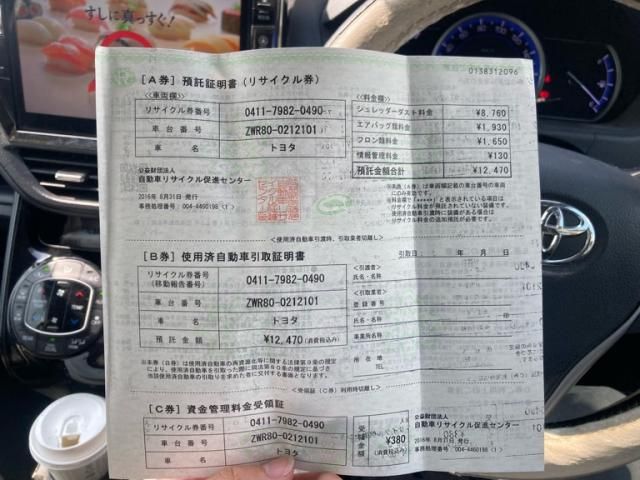 すしに真っすぐ!
0138312096
[A券] 預託証明書(リサイクル券)
<車両欄>
リサイクル券番号 0411-7982-0490
車台番号 ZWR80-0212101
車名 トヨタ
公益財団法人
自動車リサイクル促進センター
2016年 8月31日 発行
事務処理番号:004-4460198 (1)
<料金欄>
シュレッダーダスト料金 ¥8,760
エアバッグ類料金 ¥1,930
フロン類料金 ¥1,650
情報管理料金 ¥130
預託金額合計 ¥12,470
<使用済自動車引渡時、引取業者切離し>
[B券] 使用済自動車引取証明書
引取日: 年 月 日
リサイクル券番号
(移動報告番号) 0411-7982-0490
車台番号 ZWR80-0212101
車名 トヨタ
預託金額 ¥12,470 (消費税込み)
<引渡者>
氏名・名称
<引取業者>
登録番号
氏名・名称
事業所名
所在地
TEL
<受領証(C券)利用時切離し>
[C券] 資金管理料金受領証
リサイクル券番号 0411-7982-0490
車台番号 ZWR80-0212101
車名 トヨタ
受領金額 ¥380
(消費税込み)
公益財団法人
自動車リサイクル促進センター
2016年 8月31日 発行
事務処理番号:004-4460198 (1)